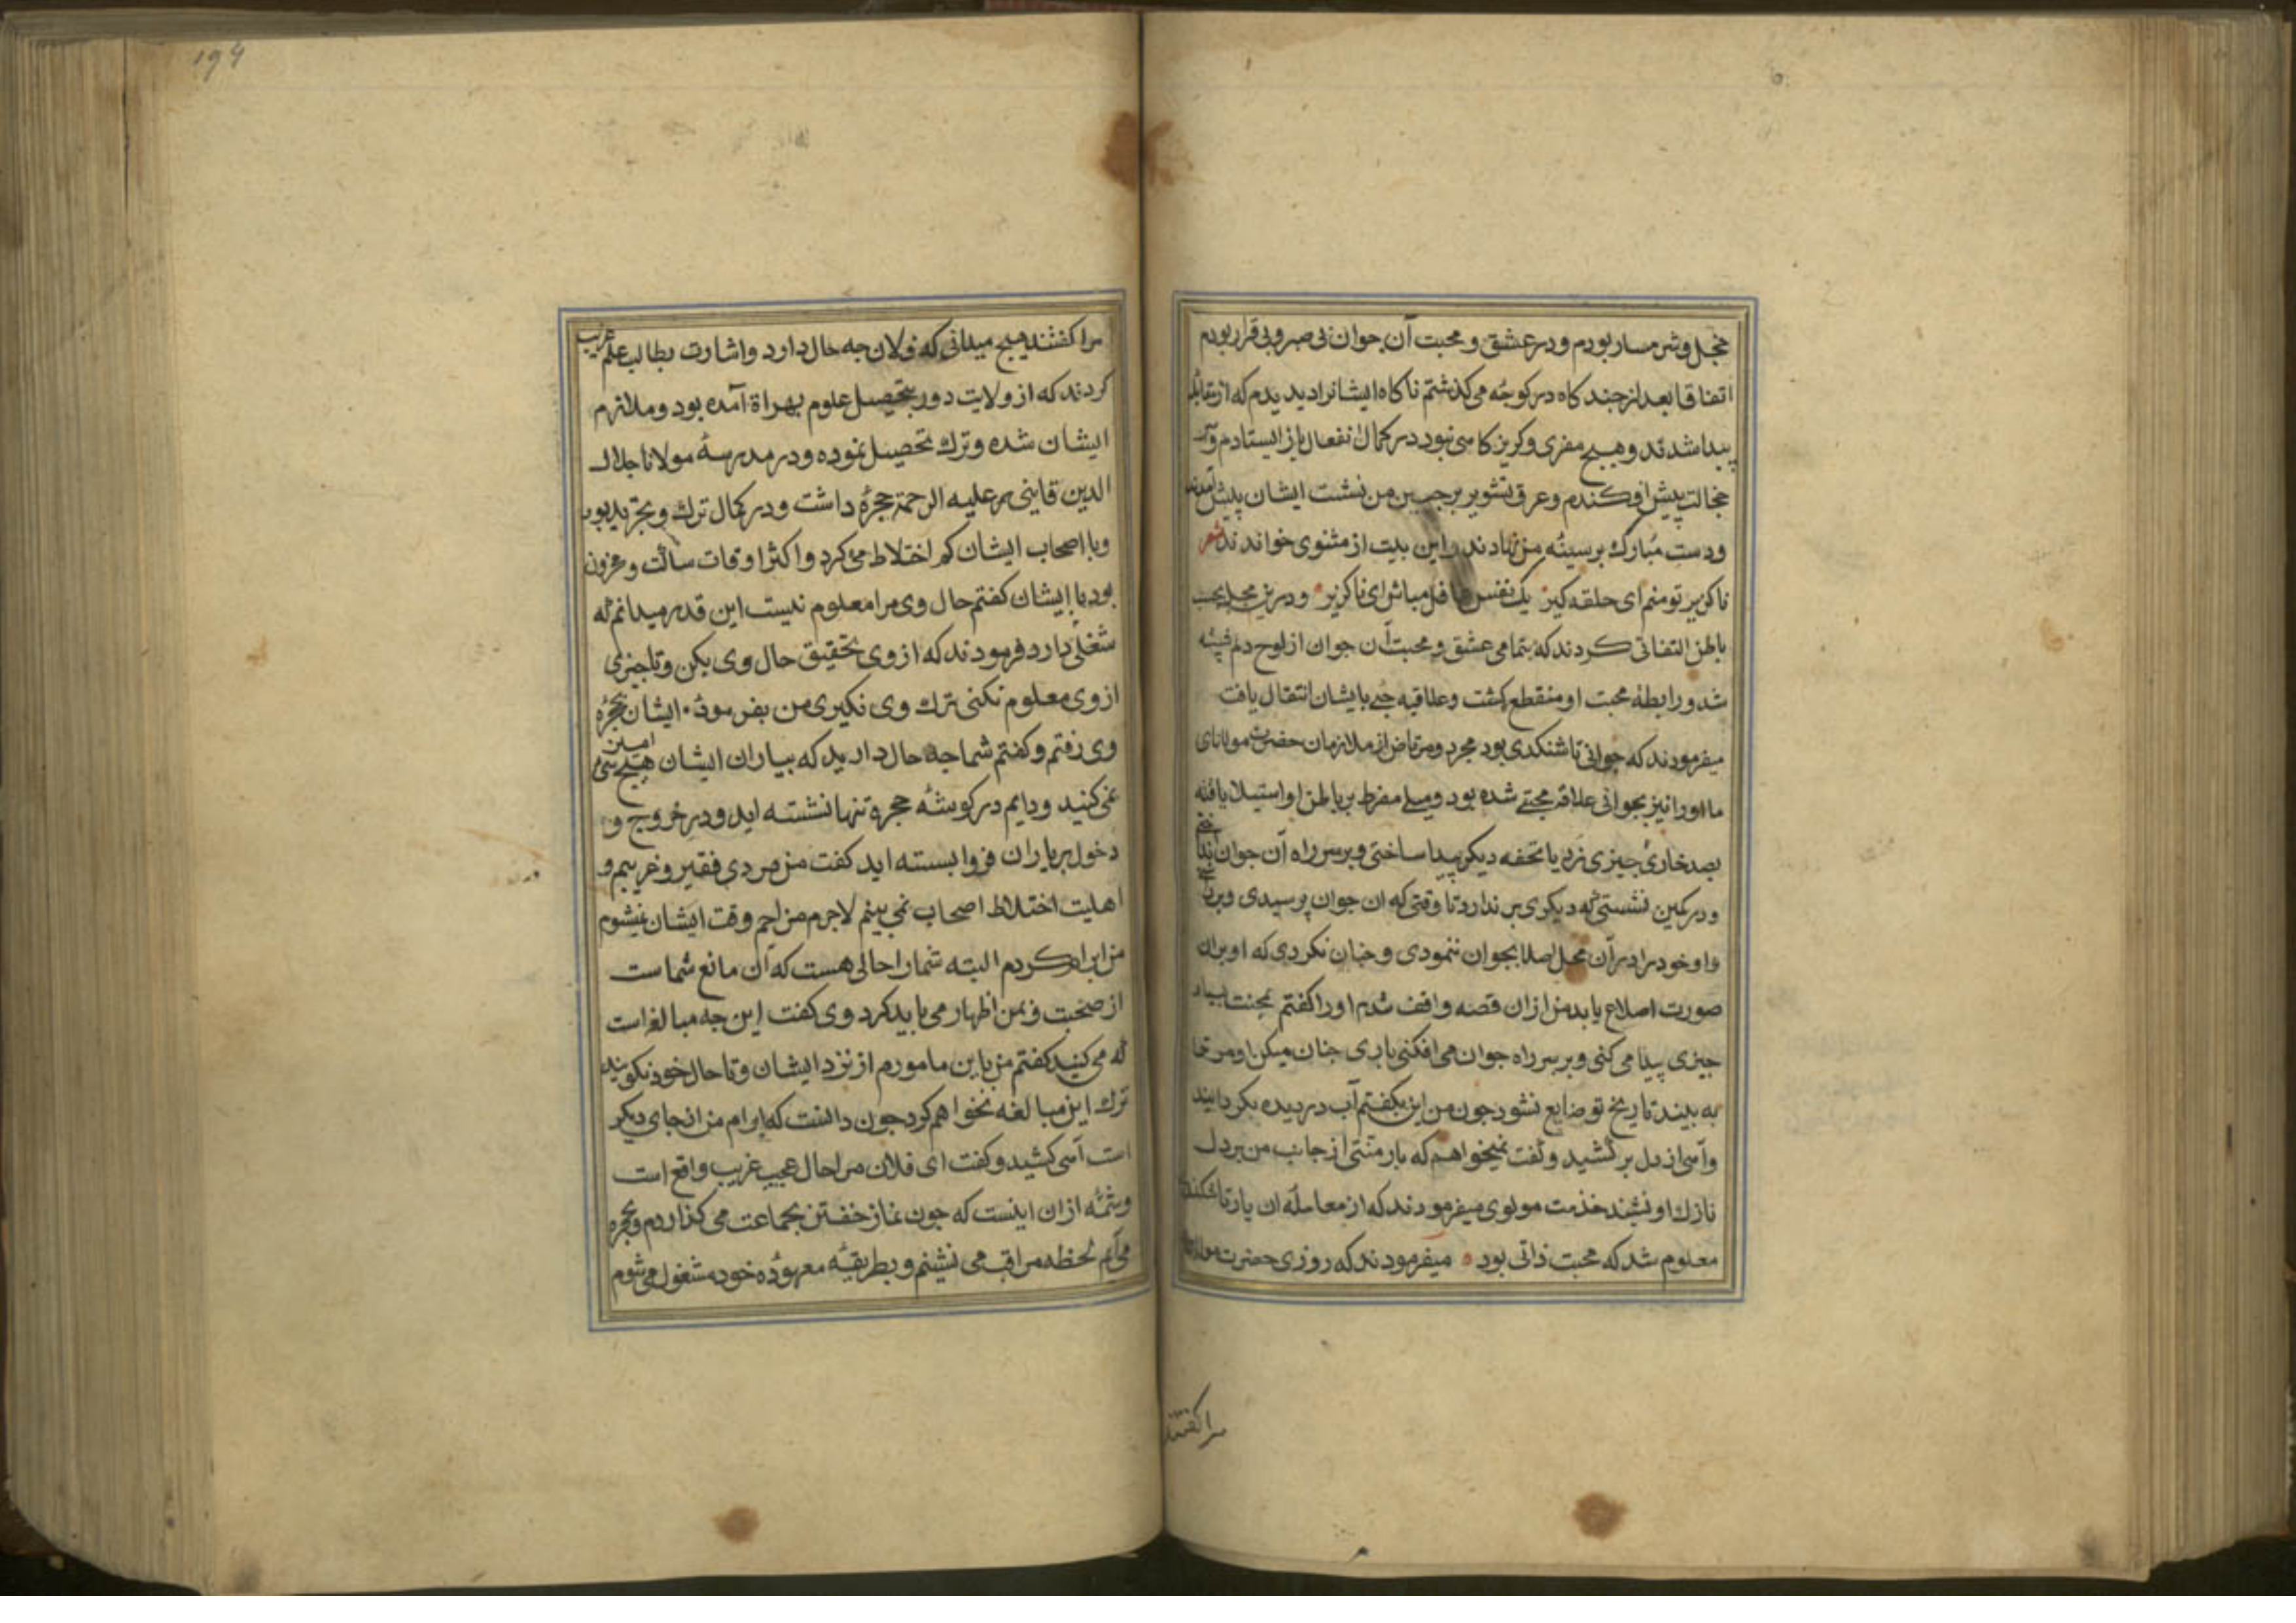 خجل و شرمسار بودم و در عشق و محبت آن جوان بی صبر و بی قرار بودم
اتفاقا بعد از چند کاه در کوچهٔ می کذشتم ناکاه ایشانرا دیدم که از مقابله
پیدا شدند و هیچ مفری و کریز کاهی نبود در کمال انفعال باز ایستادم و سر
خجالت پیش افکندم و عرق تشویر بر جبین من نشست ایشان پیش آمدند
و دست مبارک بر سینهٔ من نهادند و این بیت از مثنوی خواندند شعر
ناکزیر تو منم ای حلقه کیر یک نفس غافل مباش ای ناکزیر و درین محل بحسب
باطن التفاتی کردند که بتمامی عشق و محبت آن جوان از لوح دلم شسته
شد و رابطهٔ محبت او منقطع کشت و علاقه حبی بایشان انتقال یافت
میفرمودند که جوانی تاشکندی بود مجرد و مرتاض از ملازمان حضرت مولانای
ما او را نیز بجوانی علاقه محبتی شده بود و میلی مفرط بر باطن او استیلا یافته
بصد خاری چیزی زر یا تحفه دیکر پیدا ساختی و بر سر راه آن جوان انداختی
و در کمین نشستی که دیکری بر ندارد تا وقتی که ان جوان برسیدی و برداشتی
و او خود را در آن محل اصلا بجوان ننمودی و چنان نکردی که او بران
صورت اصلاع یابد من ازان قصه واقف شدم او را کفتم بمحنت بسیار
چیزی پیدا می کنی و بر سر راه جوان می افکنی باری چنان میکن او مر ترا
به بیند تا رنج تو ضایع نشود چون من این بکفتم آب در دیده بکردانید
و آهی از دل بر کشید و کفت نمیخواهم که بار منتی از جانب من بر دل
نازک او نشیند خدمت مولوی میفرمودند که از معامله ان یار تاشکندی
معلوم شد که محبت ذاتی بود میفرمودند که روزی حضرت مولانا
مرا کفتند
۱۹۴
مرا کفتند هیچ میدانی که فلان چه حال دارد و اشارت بطالب علم غریب
کردند که از ولایت دور بتحصیل علوم بهراة آمده بود و ملازم
ایشان شده و ترک تحصیل نموده و در مدرسهٔ مولانا جلال
الدین قاینی علیه الرحمة حجرهٔ داشت و در کمال ترک و تجرید بود
و با اصحاب ایشان کم اختلاط می کرد و اکثر اوقات ساکت و محزون
بود با ایشان کفتم حال وی مرا معلوم نیست این قدر میدانم که
شغلی دارد فرمودند که از وی تحقیق حال وی بکن و تا چیزی
از وی معلوم نکنی ترک وی نکیری من بفرمودهٔ ایشان بحجرهٔ
وی رفتم و کفتم شما چه حال دارید که بیاران ایشان هیچ امیزشی
نمی کنید و دایم در کوشهٔ حجره تنها نشسته اید و در خروج و
دخول بر یاران فرو بسته اید کفت من مردی فقیر و غریبم و
اهلیت اختلاط اصحاب نمی بینم لاجرم مزاحم وقت ایشان نمیشوم
من ابرام کردم البته شمارا حالی هست که آن مانع شماست
از صحبت و بمن اظهار می باید کرد وی کفت این چه مبالغه است
که می کنید کفتم من باین مامورم از نزد ایشان و تا حال خود نکویید
ترک این مبالغه نخواهم کرد چون دانست که ابرام من از جای دیکر
است آهی کشید و کفت ای فلان مرا حال عجیب غریب واقع است
و شمهٔ ازان اینست که چون نماز خفتن بجماعت می کذاردم و بحجره
می آیم لحظه مراقب می نشینم و بطریقهٔ معهودهٔ خود مشغول می شوم